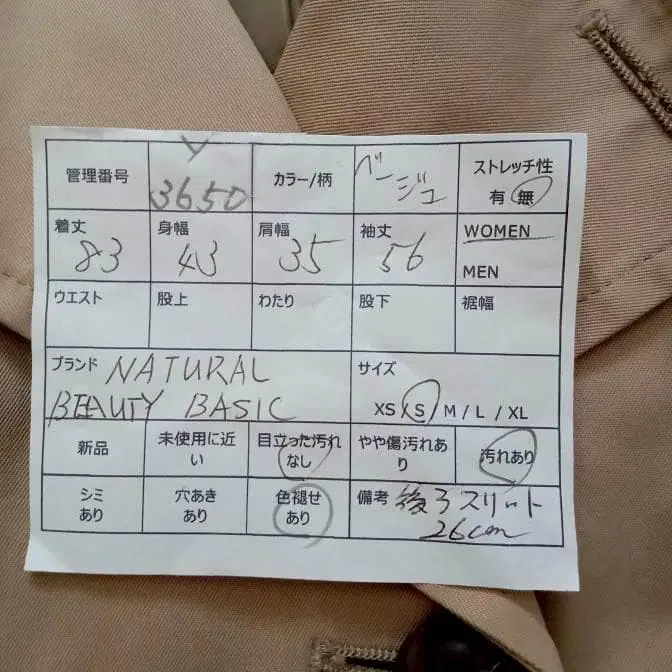 管理番号
レ
3650
カラー/柄
ベー
ジュ
ストレッチ性
有 無
着丈
83
身幅
43
肩幅
35
袖丈
56
WOMEN
MEN
ウエスト
股上
わたり
股下
裾幅
ブランド NATURAL
BEAUTY BASIC
サイズ
XS/S/M/L/XL
新品
未使用に近
い
目立った汚れ
なし
やや傷汚れあ
り
汚れあり
シミ
あり
穴あき
あり
色褪せ
あり
備考 後ろスリット
26cm